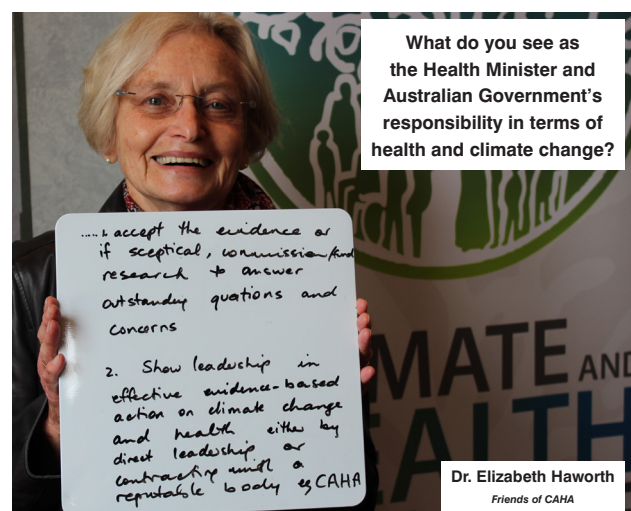 What do you see as
the Health Minister and
Australian Government's
responsibility in terms of
health and climate change?
.....1. accept the evidence or
if sceptical, commission/fund
research to answer
outstanding quations and
concerns
2. Show leadership in
effective evidence-based
action on climate change
and health either by
direct leadership or
contracting with a
reputable body eg CAHA
MATE AND
EALTH
Dr. Elizabeth Haworth
Friends of CAHA